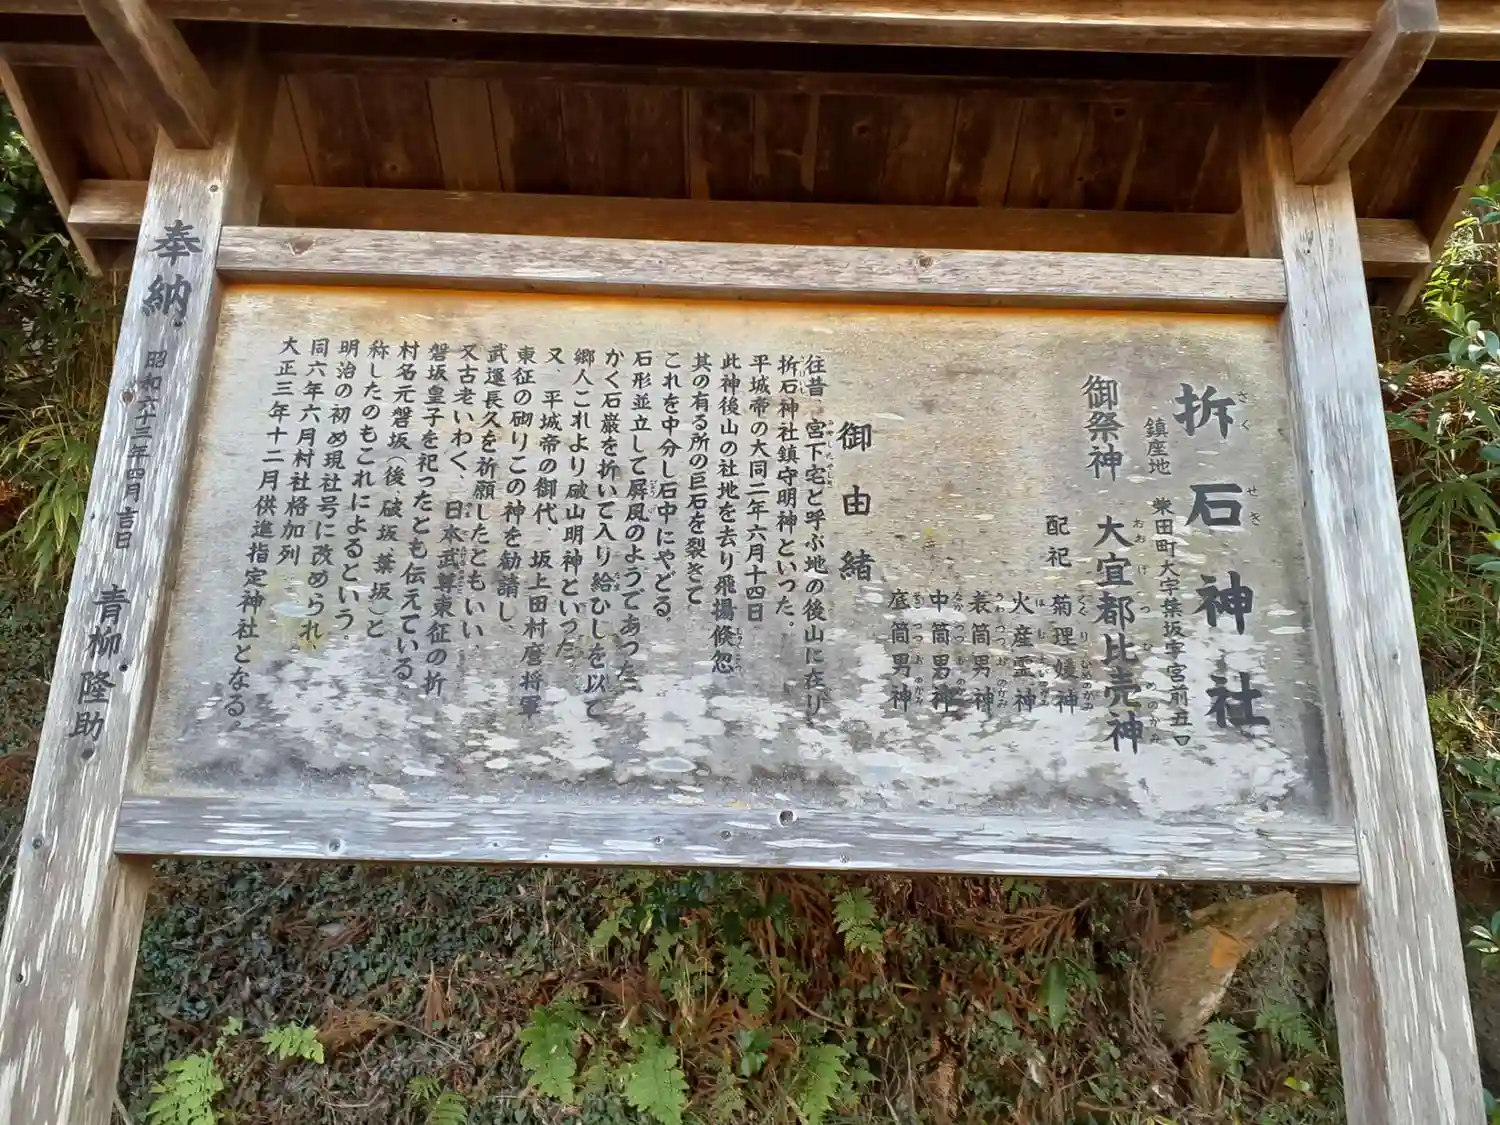 拆石神社
さくせき
鎮座地 柴田町大字葉坂字宮前五
御祭神 大宜都比売神
おおげつひめのかみ
配祀 菊理媛神
くくりひめのかみ
火産霊神
表筒男神
うわつつおのかみ
中筒男神
なかつつおのかみ
底筒男神
そこつつおのかみ
御由緒
往昔 宮下宅と呼ぶ地の後山に在り
折石神社鎮守明神といった。
平城帝の大同二年六月十四日
此神後山の社地を去り飛揚倏忽
其の有る所の巨石を裂きて
これを中分し石中にやどる。
石形並立して屏風のようであった、
かく石巌を折いて入り給ひしを以て
郷人これより破山明神といった。
又、平城帝の御代、坂上田村麿将軍
東征の砌りこの神を勧請し、
武運長久を祈願したともいい、
又古老いわく、日本武尊東征の折
磐坂皇子を祀ったとも伝えている。
村名元磐坂（後、破坂、葉坂）と
称したのもこれによるという。
明治の初め現社号に改められ、
同六年六月村社格加列
大正三年十二月供進指定神社となる。
奉納 昭和六十三年四月吉日 青柳隆助